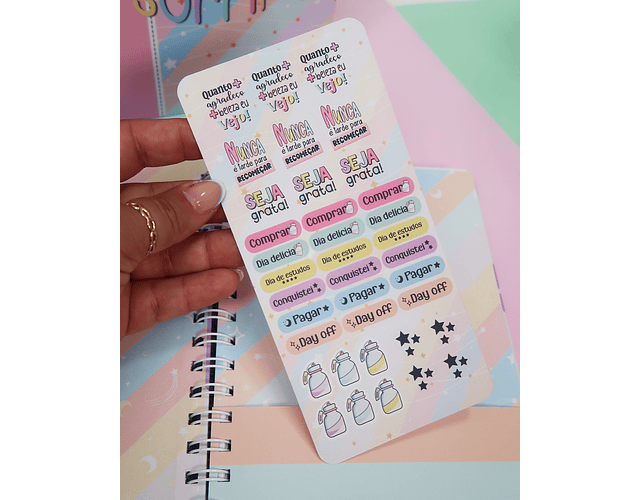 Quanto + agradeço + beleza eu vejo!
Quanto + agradeço + beleza eu vejo!
Quanto + agradeço + beleza eu vejo!
NUNCA é tarde para RECOMEÇAR
NUNCA é tarde para RECOMEÇAR
NUNCA é tarde para RECOMEÇAR
SEJA grata!
SEJA grata!
SEJA grata!
Comprar Comprar Comprar
Dia delícia Dia delícia Dia delícia
Dia de estudos Dia de estudos Dia de estudos
Conquistei Conquistei Conquistei
Pagar Pagar Pagar
Day off Day off Day off